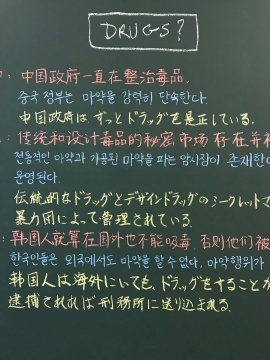 DRUGS?
: 中国政府一直在整治毒品.
중국 정부는 마약을 강력히 단속한다.
中国政府はずっとドラッグを是正している.
: 传统和设计毒品的秘密市场存在并被
전통적인 마약과 가공된 마약을 파는 암시장이 존재한다
운영된다.
伝統的なドラッグとデザインドラッグのシークレットマ
暴力団によって管理されている.
: 韩国人就算在国外也不能吸毒 否则他们被
한국인들은 외국에서도 마약을 할 수 없다. 마약행위가
韓国人は海外にいても,ドラッグをすることが
逮捕されれば刑務所に送り込まれる.